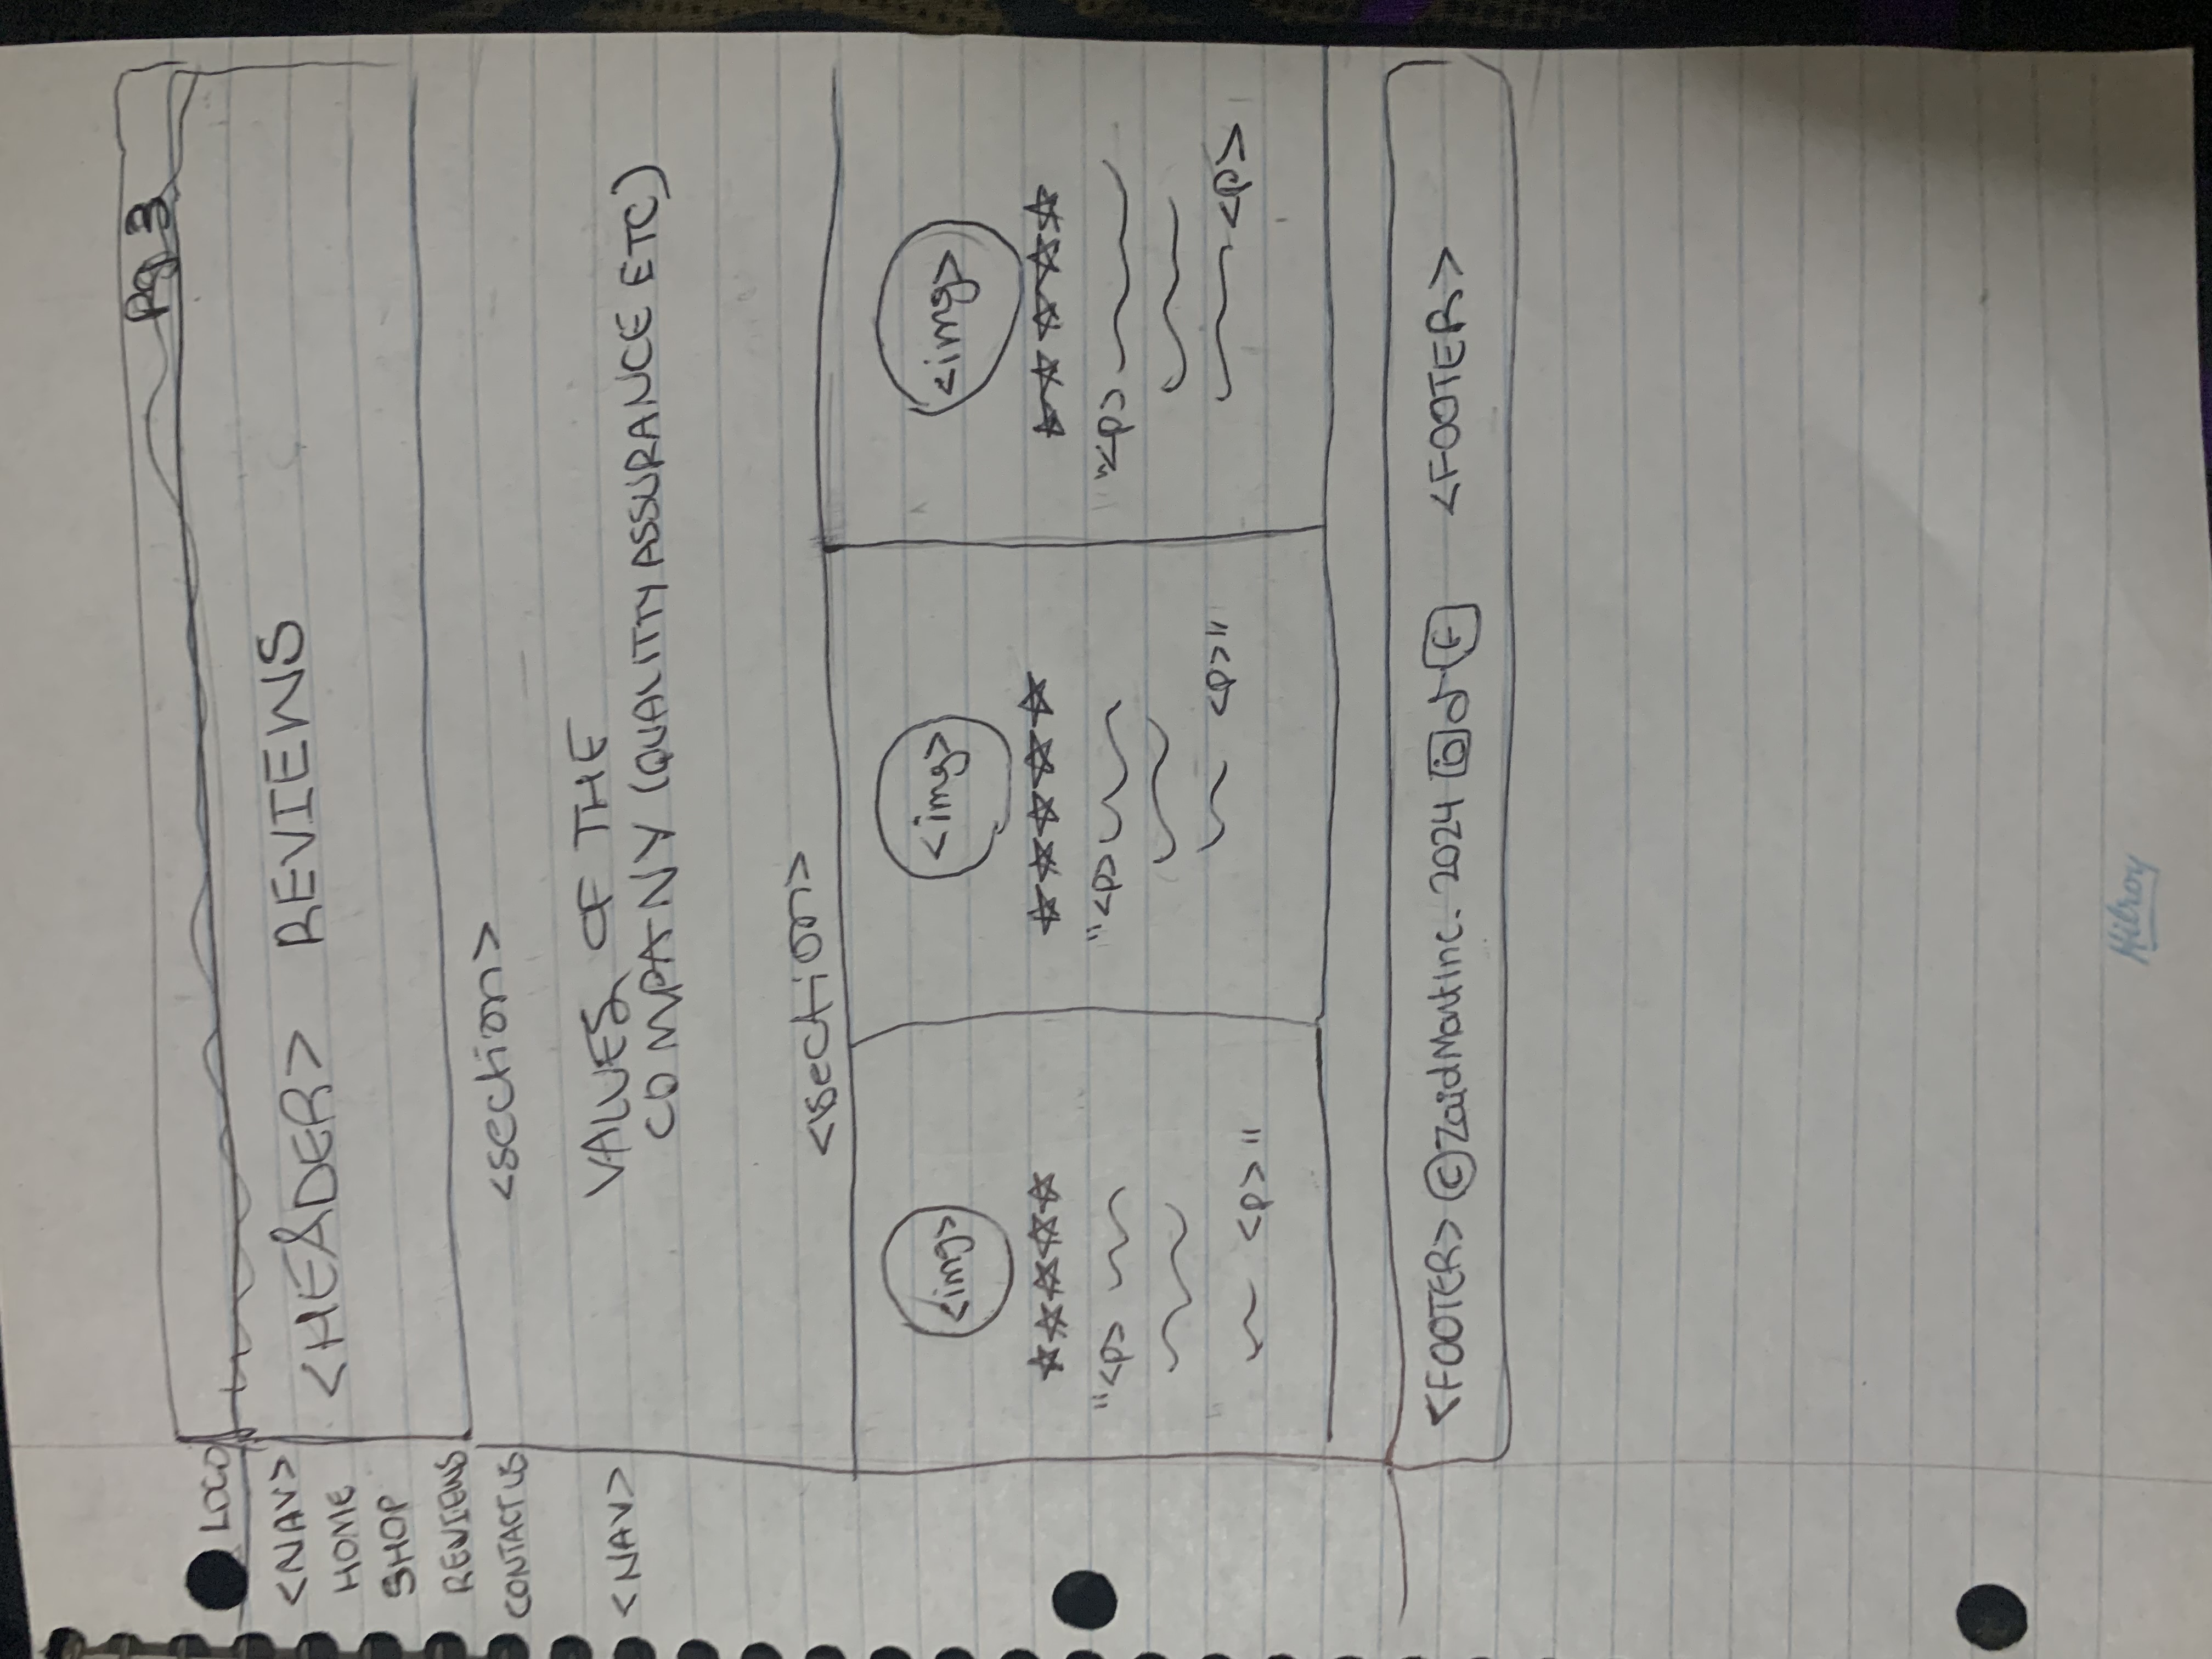 Pg 3
LOGO
<NAV>
HOME
SHOP
REVIEWS
CONTACT US
<NAV>
<HEADER> REVIEWS
<section>
VALUES OF THE
COMPANY (QUALITTY ASSURANCE ETC)
<section>
<img>
"<p>
<p>"
<img>
"<p>
<p>"
<img>
"<p>
<p>
<FOOTER> ©ZaidMart Inc. 2024 F <FOOTER>
Hilroy